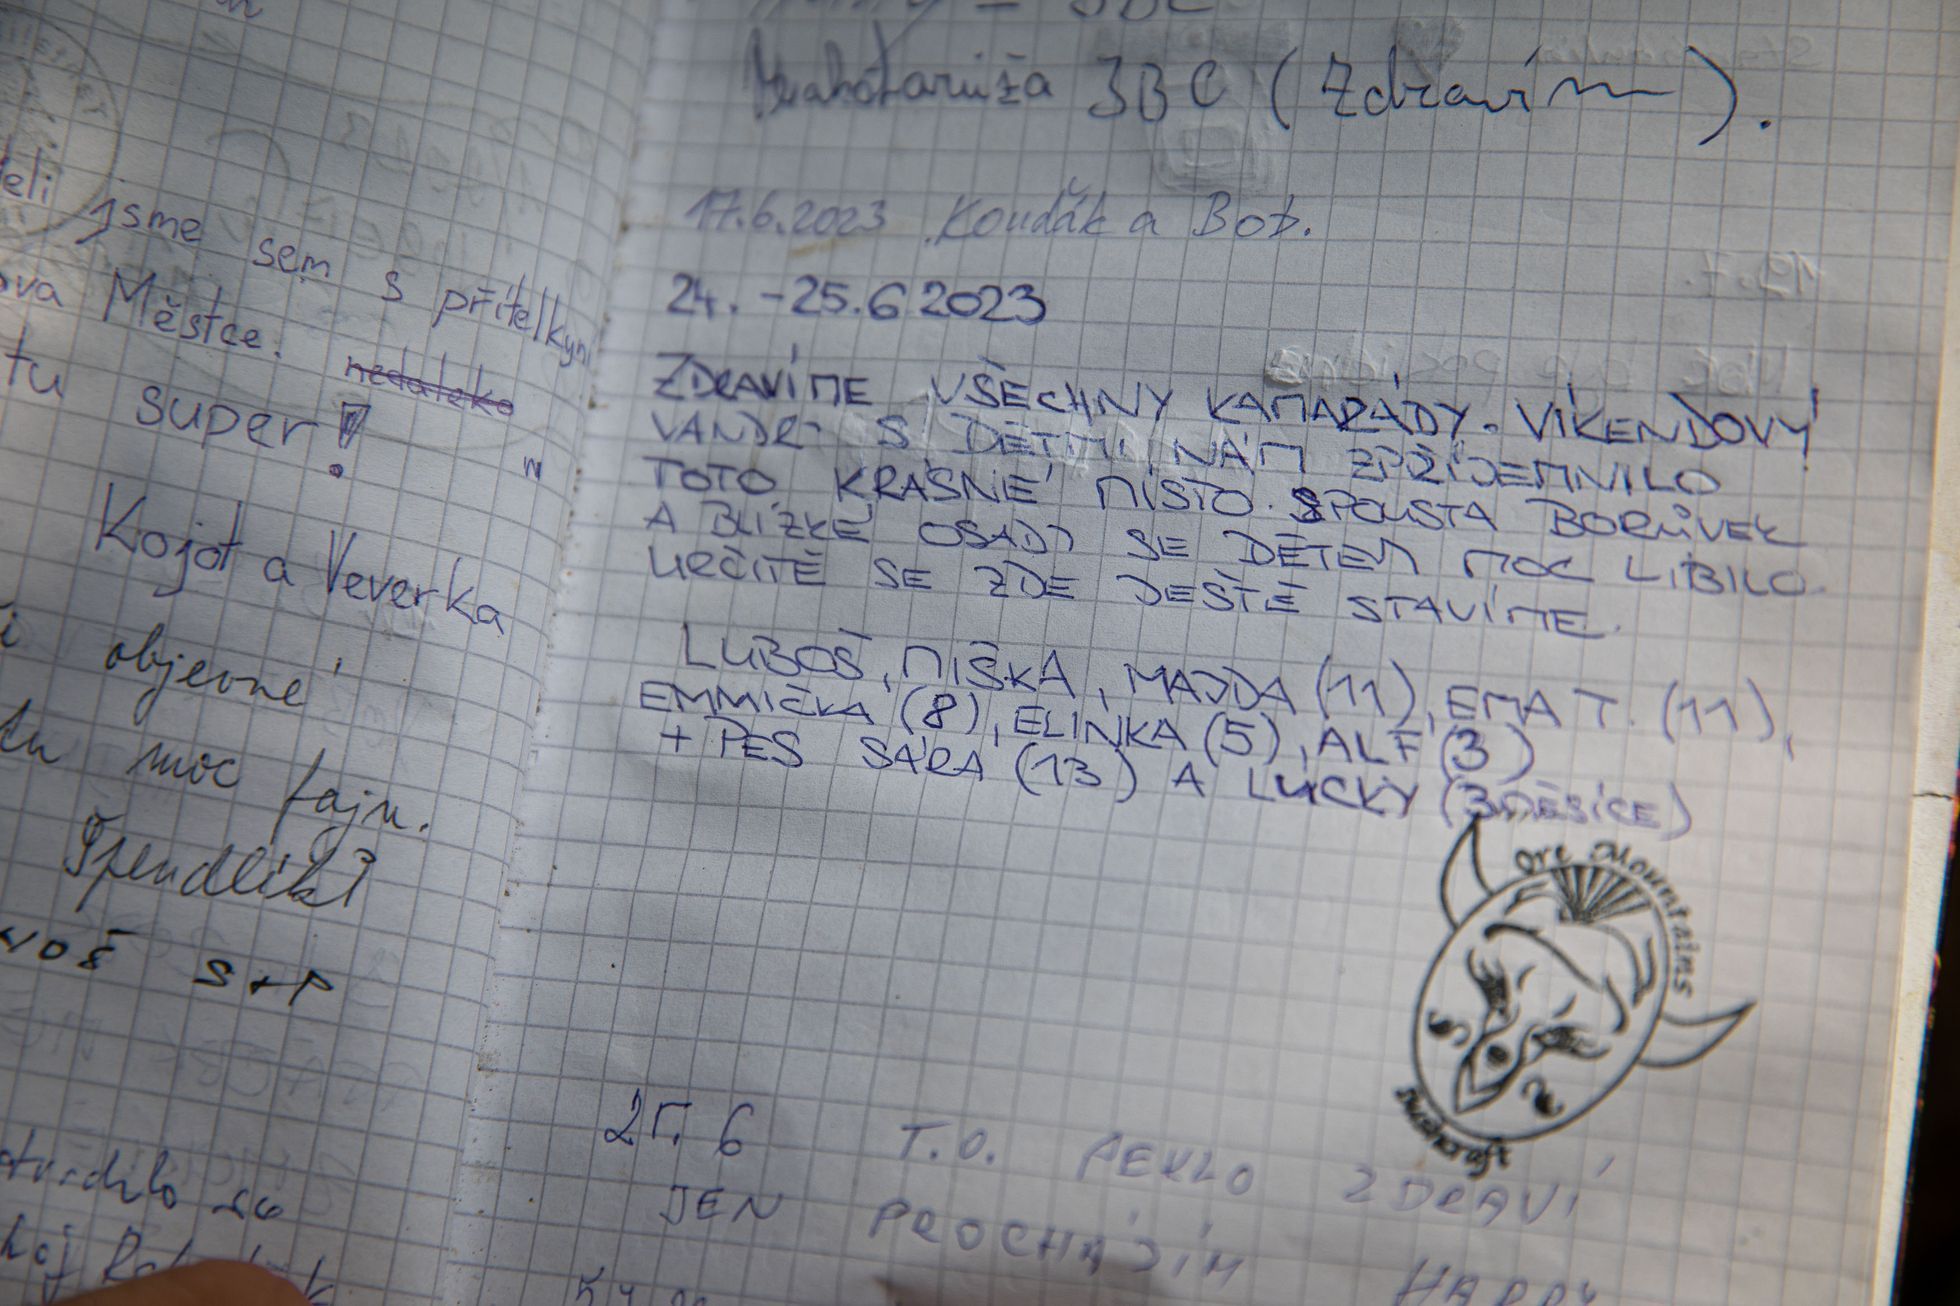 jsme sem s přítelkyn
Městce. nedaleko
tu super!
Kojot a Veverka
objevné
moc fajn.
Špendlík
S+P
3BC (Zdravím).
17.6.2023 Kouďák a Bob.
24. -25.6 2023
ZDRAVÍME VŠECHNY KAMARÁDY. VÍKENDOVÝ
VANDR S DĚTMI, NÁM ZPŘÍJEMNILO
TOTO KRÁSNÉ MÍSTO. SPOUSTA BORŮVEK
A BLÍZKÉ OSADY SE DĚTEM MOC LÍBILO.
URČITĚ SE ZDE JEŠTĚ STAVÍME.
LUBOŠ, MIŠKA, MAJDA (11), EMA T. (11),
EMMIČKA (8), ELINKA (5), ALF (3)
+ PES SÁRA (13) A LUCKY (3 MĚSÍCE)
Ore Mountains
Bushcraft
25. 6 T.O. PEKLO ZDRAVÍ
JEN PROCHÁZÍM HAPPY